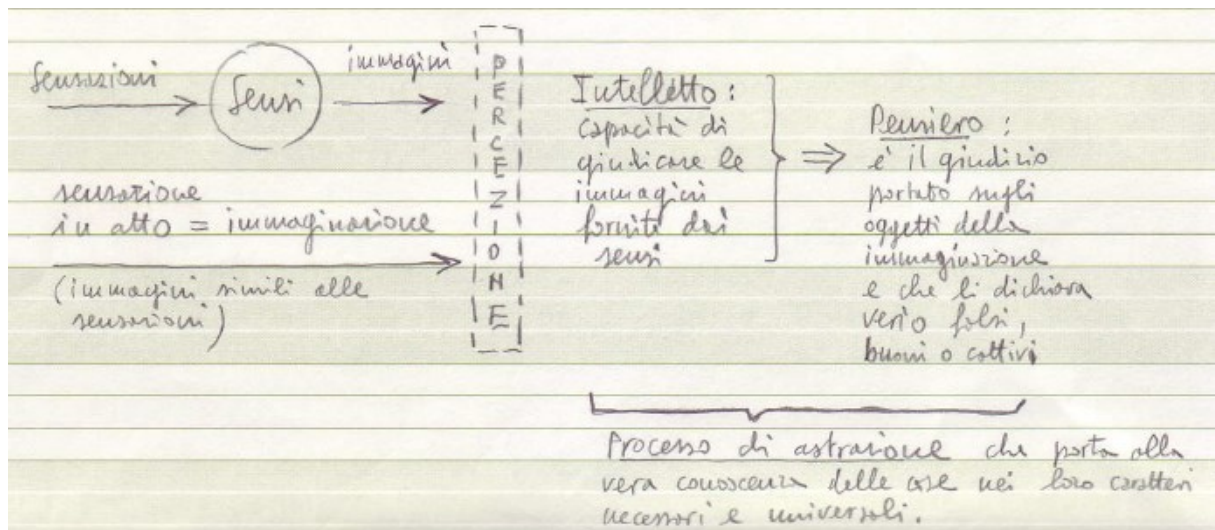 Sensazioni
Sensi
immagini
sensazione
in atto = immaginazione
(immagini simili alle
sensazioni)
PERCEZIONE
Intelletto :
capacità di
giudicare le
immagini
fornite dai
sensi
Pensiero :
è il giudizio
portato sugli
oggetti della
immaginazione
e che li dichiara
veri o falsi,
buoni o cattivi
Processo di astrazione che porta alla
vera conoscenza delle cose nei loro caratteri
necessari e universali.